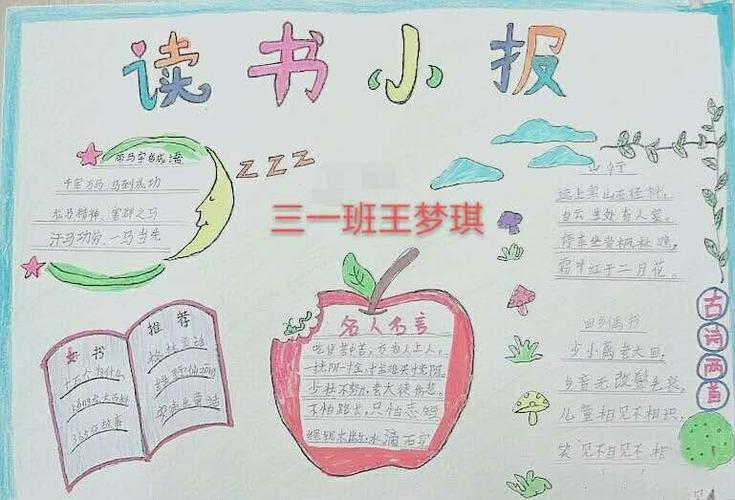 读书小报
带马字的成语
千军万马、马到成功
龙马精神、害群之马
汗马功劳、一马当先
ZZZ
三一班王梦琪
山行
远上寒山石径斜，
白云生处有人家。
停车坐爱枫林晚，
霜叶红于二月花。
古诗两首
回乡偶书
少小离老大回，
乡音无改鬓毛衰。
儿童相见不相识，
笑
名人名言
吃得苦中苦，方为人上人。
一寸光阴一寸金，寸金难买寸光阴。
少壮不努力，老大徒伤悲。
不怕路长，只怕志短
绳锯木断，水滴石穿
好书
推荐
十万个为什么
格林童话
安徒生童话